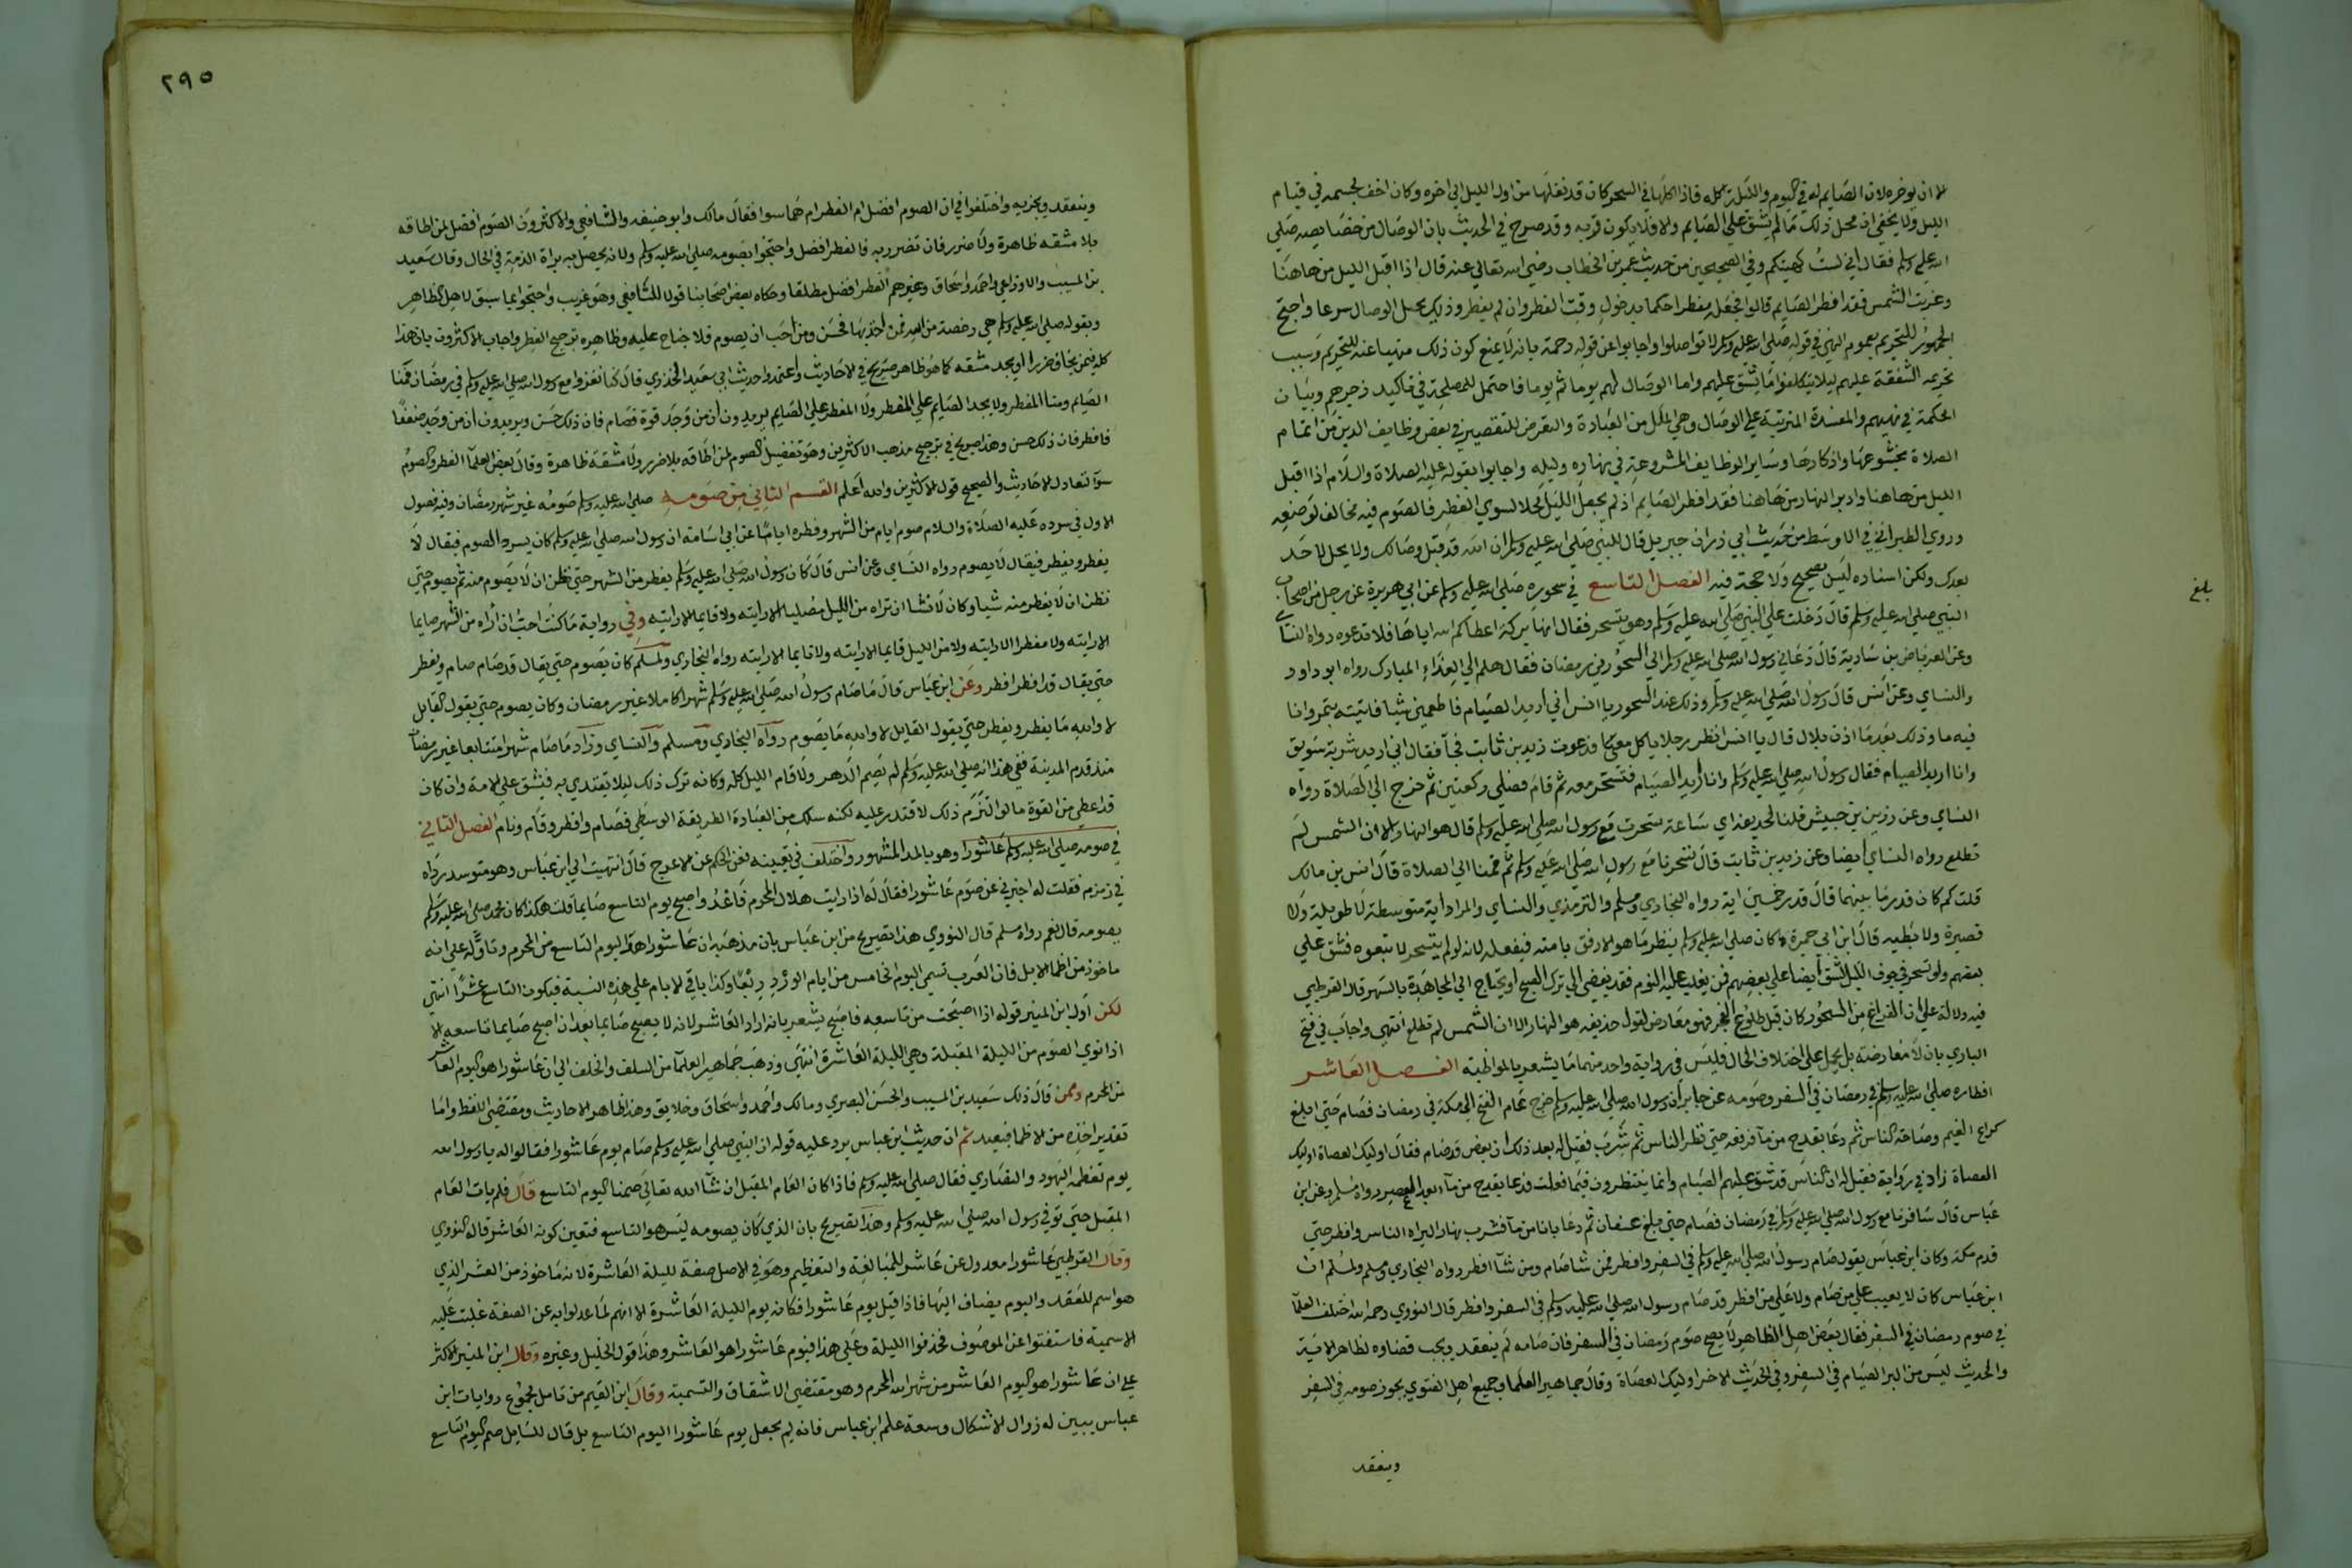 لا ان يوخره لان الصايم له في اليوم والليلة اكله فاذا اكلها في السحر كان قد نقلها من اول الليل الى اخره وكان اخف لجسمه في قيام
الليل ولا يخفى ان محل ذلك مالم يشق على الصايم والا فلا يكون قربه وقد صرح في الحديث بان الوصال من خصايصه صلى
الله عليه وسلم فقال اني لست كهيئتكم وفي الصحيحين من حديث عمر بن الخطاب رضي الله تعالى عنه قال اذا اقبل الليل من هاهنا
وغربت الشمس فقد افطر الصايم قالوا فجعله مفطرا حكما بدخول وقت الفطر وان لم يفطر وذلك يحيل الوصال شرعا واحتج
الجمهور للتحريم بعموم النهي في قوله صلى الله عليه وسلم لا تواصلوا واجابوا عن قوله رحمة بانه لا يمنع كون ذلك منهيا عنه للتحريم وسبب
تحريمه الشفقة عليهم ليلا يتكلفوا ما يشق عليهم واما الوصال لهم يوما ثم يوما فاحتمل للمصلحة في تاكيد زجرهم وبيان
الحكمة في نهيهم والمفسدة المترتبة على الوصال وهي الملل من العبادة والتعرض للتقصير في بعض وظايف الدين من اتمام
الصلاة بخشوعها واذكارها وساير الوظايف المشروعة في نهاره وليله واجابوا بقوله عليه الصلاة والسلام اذا اقبل
الليل من هاهنا وادبر النهار من هاهنا فقد افطر الصايم اذ لم يجعل الليل محلا لسوى الفطر فالصوم فيه مخالف لوضعه
وروى الطبراني في الاوسط من حديث ابي ذر ان جبريل قال للنبي صلى الله عليه وسلم ان الله قد قبل وصالك ولا يحل لاحد
بعدك ولكن اسناده ليس بصحيح ولا حجة فيه الفصل التاسع في سحوره صلى الله عليه وسلم عن ابي هريرة عن رجل من اصحاب
بلغ
النبي صلى الله عليه وسلم قال دخلت على النبي صلى الله عليه وسلم وهو يتسحر فقال انها بركة اعطاكم الله اياها فلا تدعوه رواه النساي
وعن العرباض بن سارية قال دعاني رسول الله صلى الله عليه وسلم الى السحور في رمضان فقال هلم الى الغداء المبارك رواه ابو داود
والنساي وعن انس قال رسول الله صلى الله عليه وسلم وذلك عند السحور يا انس اني اريد الصيام فاطعمني شيا فاتيته بتمر وانا
فيه ما وذلك بعد ما اذن بلال قال يا انس انظر رجلا ياكل معي فدعوت زيد بن ثابت فجآ فقال اني اريد شربة سويق
وانا اريد الصيام فقال رسول الله صلى الله عليه وسلم وانا اريد الصيام فتسحر معه ثم قام فصلى ركعتين ثم خرج الى الصلاة رواه
النساي وعن زر بن حبيش قلنا لحذيفة اي ساعة تسحرت مع رسول الله صلى الله عليه وسلم قال هو النهار الا ان الشمس لم
تطلع رواه النساي ايضا وعن زيد بن ثابت قال تسحرنا مع رسول الله صلى الله عليه وسلم ثم قمنا الى الصلاة قال انس بن مالك
قلت كم كان قدر ما بينهما قال قدر خمسين اية رواه البخاري ومسلم والترمذي والنساي والمراد اية متوسطة لا طويلة ولا
قصيرة ولا بطيه قال ابن ابي جمرة كان صلى الله عليه وسلم ينظر ما هو الارفق بامته فيفعله لانه لو لم يتسحر لاتبعوه فشق على
بعضهم ولو تسحر في جوف الليل لشق ايضا على بعضهم فمن يغلب عليه النوم فقد يفضي الى ترك الصبح او يحتاج الى المجاهدة بالسهر قال القرطبي
فيه دلالة على ان الفراغ من السحور كان قبل طلوع الفجر فهو معارض لقول حذيفه هو النهار الا ان الشمس لم تطلع انتهى واجاب في فتح
الباري بان لا معارضة بل يحمل على اختلاف الحال فليس في رواية واحد منهما ما يشعر بالمواظبة الفصل العاشر
افطاره صلى الله عليه وسلم في رمضان في السفر وصومه عن جابر ان رسول الله صلى الله عليه وسلم خرج عام الفتح الى مكة في رمضان فصام حتى ابلغ
كراع الغيم وصامه الناس ثم دعا بقدح من مآ فرفعه حتى نظر الناس ثم شرب فقيل له بعد ذلك ان بعض قد صام فقال اوليك العصاة اوليك
العصاة زاد في رواية فقيل له ان الناس قد شق عليهم الصيام وانما ينتظرون فيما فعلت فدعا بقدح من مآ بعد العصر رواه مسلم وعن ابن
عباس قال سافرنا مع رسول الله صلى الله عليه وسلم في رمضان فصام حتى بلغ عسفان ثم دعا بانا من مآ فشرب نهارا ليراه الناس وافطر حتى
قدم مكة وكان ابن عباس يقول صام رسول الله صلى الله عليه وسلم في السفر وافطر فمن شا صام ومن شآ افطر رواه البخاري ومسلم ولمسلم ان
ابن عباس كان لا يعيب على من صام ولا على من افطر قد صام رسول الله صلى الله عليه وسلم في السفر وافطر قال النووي رحمه الله اختلف العلمآ
في صوم رمضان في السفر فقال بعض اهل الظاهر لا يصح صوم رمضان في السفر فان صامه لم ينعقد ويجب قضاوه لظاهر الاية
والحديث ليس من البر الصيام في السفر وفي الحديث الاخر اوليك العصاة وقال جماهير العلما وجميع اهل الفتوى يجوز صومه في السفر
وينعقد
٢٩٥
وينعقد ويجزيه واختلفوا في ان الصوم افضل ام الفطر ام هما سوا فقال مالك وابو حنيفه والشافعي والاكثرون الصوم افضل لمن اطاقه
بلا مشقه ظاهرة ولا ضرر فان تضرر به فالفطر افضل واحتجوا بصومه صلى الله عليه وسلم ولانه يحصل به براة الذمة في الحال وقال سعيد
بن المسيب والاوزاعي واحمد واسحاق وغيرهم الفطر افضل مطلقا وحكاه بعض اصحابنا قولا للشافعي وهو غريب واحتجوا بما سبق لاهل الظاهر
وبقوله صلى الله عليه وسلم هي رخصة من الله فمن اخذ بها فحسن ومن احب ان يصوم فلا جناح عليه وظاهره ترجيح الفطر واجاب الاكثرون بان هذا
كله فيمن يخاف ضررا او يجد مشقه كما هو ظاهر صريح في الاحاديث واعتمدوا حديث ابي سعيد الخدري قال كنا نغزوا مع رسول الله صلى الله عليه وسلم في رمضان فمنا
الصايم ومنا المفطر ولا يجد الصايم على المفطر ولا المفطر على الصايم يريدون ان من وجد قوة فصام فان ذلك حسن ويريدون ان من وجد ضعفا
فافطر فان ذلك حسن وهذا صريح في ترجيح مذهب الاكثرين وهو تفضيل الصوم لمن اطاقه بلا ضرر ولا مشقة ظاهرة وقال بعض العلمآ الفطر والصوم
سوآ لتعادل الاحاديث والصحيح قول الاكثرين والله اعلم القسم الثاني من صومه صلى الله عليه وسلم صومه غير شهر رمضان وفيه فصول
الاول في سرده عليه الصلاة والسلام صوم ايام من الشهر وفطره اياما عن ابي اسامة ان رسول الله صلى الله عليه وسلم كان يسرد الصوم فيقال لا
يفطر ويفطر فيقال لا يصوم رواه النساي وعن انس قال كان رسول الله صلى الله عليه وسلم يفطر من الشهر حتى نظن ان لا يصوم منه ثم يصوم حتى
نظن ان لا يفطر منه شيا وكان لا نشا ان تراه من الليل مصليا الا رايته ولا نايما الا رايته وفي رواية ما كنت احب ان اراه من الشهر صايما
الا رايته ولا مفطرا الا رايته ولا من الليل قايما الا رايته ولا نايما الا رايته رواه البخاري ولمسلم كان يصوم حتى يقال قد صام صام ويفطر
حتى يقال قد افطر افطر وعن ابن عباس قال ما صام رسول الله صلى الله عليه وسلم شهرا كاملا غير رمضان وكان يصوم حتى يقول القايل
لا والله ما يفطر ويفطر حتى يقول القايل لا والله ما يصوم رواه البخاري ومسلم والنساي وزاد ما صام شهرا متتابعا غير رمضان
منذ قدم المدينة ففي هذا انه صلى الله عليه وسلم لم يصم الدهر ولا قام الليل كله وكانه ترك ذلك ليلا يقتدى به فيشق على الامة وان كان
قد اعطي من القوة ما لو التزم ذلك لاقتدر عليه لكنه سلك من العبادة الطريقة الوسطى فصام وافطر وقام ونام الفصل الثاني
في صومه صلى الله عليه وسلم عاشورا وهو بالمد المشهور واختلف في تعيينه فعن الحكم بن الاعرج قال انتهيت الى ابن عباس وهو متوسد رداه
في زمزم فقلت له اخبرني عن صوم عاشورا فقال له اذا رايت هلال المحرم فاعدد واصبح يوم التاسع صايما قلت هكذا كان محمد صلى الله عليه وسلم
يصومه قال نعم رواه مسلم قال النووي هذا تصريح من ابن عباس بان مذهبه ان عاشورا هو اليوم التاسع من المحرم وتاوله على انه
ماخوذ من اظما الابل فان العرب تسمي اليوم الخامس من ايام الورد ربعا وكذا باقي الايام على هذه النسبة فيكون التاسع عشرا انتهى
لكن اول ابن المنير قوله اذا اصبحت من تاسعه فاصبح يشعر بانه اراد العاشر لانه لا يصبح صايما بعد ان اصبح صايما تاسعه الا
اذا نوى الصوم من الليلة المقبلة وهي الليلة العاشرة انتهى وذهب جماهير العلمآ من السلف والخلف الى ان عاشورا هو اليوم العاشر
من المحرم وممن قال ذلك سعيد بن المسيب والحسن البصري ومالك واحمد واسحاق وخلايق وهذا ظاهر الاحاديث ومقتضى اللفظ واما
تقدير اخذه من الاظما فبعيد ثم ان حديث ابن عباس يرد عليه قوله ان النبي صلى الله عليه وسلم صام يوم عاشورا فقالوا له يا رسول الله
يوم تعظمه اليهود والنصارى فقال صلى الله عليه وسلم فاذا كان العام المقبل ان شآ الله تعالى صمنا اليوم التاسع قال فلم يات العام
المقبل حتى توفي رسول الله صلى الله عليه وسلم وهذا تصريح بان الذي كان يصومه ليس هو التاسع فتعين كونه العاشر قاله النووي
وقال القرطبي عاشورا معدول عن عاشر للمبالغة والتعظيم وهو في الاصل صفة لليلة العاشرة لانه ماخوذ من العشر الذي
هو اسم للعقد واليوم يضاف اليها فاذا قيل يوم عاشورا فكانه يوم الليلة العاشرة الا انهم لما عدلوا به عن الصفة غلبت عليه
الاسمية فاستغنوا عن الموصوف فحذفوا الليلة وعلى هذا فيوم عاشورا هو العاشر وهذا قول الخليل وغيره وقال ابن المنير الاكثر
على ان عاشورا هو اليوم العاشر من شهر الله المحرم وهو مقتضى الاشتقاق والتسمية وقال ابن القيم من تامل مجموع روايات ابن
عباس يبين له زوال الاشكال وسعة علم ابن عباس فانه لم يجعل يوم عاشورا اليوم التاسع بل قال للسايل صم اليوم التاسع